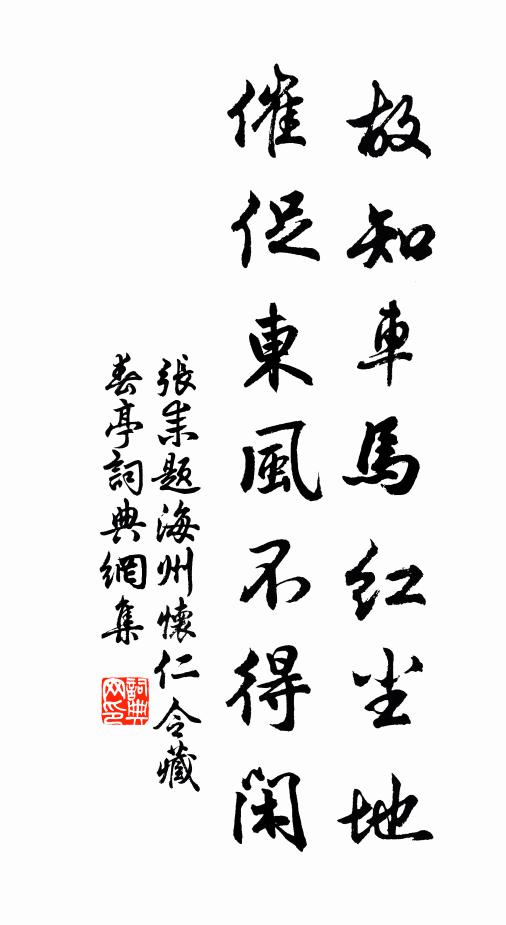 故知車馬紅尘地
催促東風不得閑
張耒題海州懷仁令藏
春亭詞典網集
詞典網印